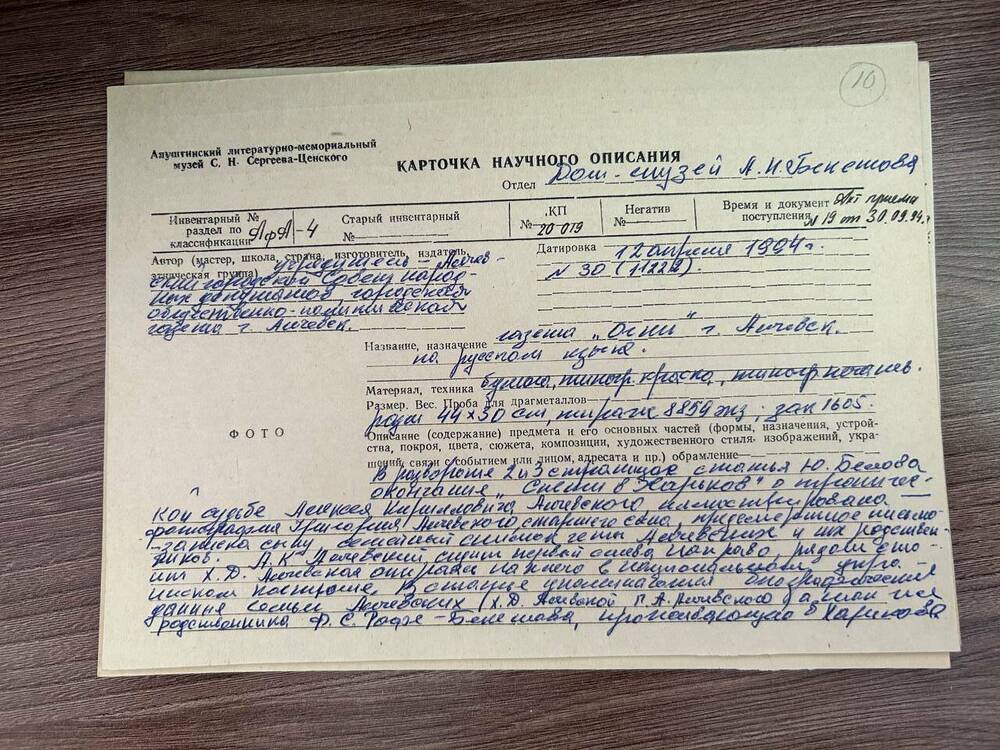 10
Алуштинский литературно-мемориальный
музей С. Н. Сергеева-Ценского
КАРТОЧКА НАУЧНОГО ОПИСАНИЯ
Отдел Дом-музей А.Н. Бекетова
Инвентарный №
раздел по
классификации АфА-4
Старый инвентарный
№
КП
№ 20 079
Негатив
№
Время и документ Акт приема
поступления № 19 от 30.09.94 г.
Автор (мастер, школа, страна, изготовитель, издатель,
этническая группа) учредитель – Алчев-
ский городской Совет народ-
ных депутатов, городская
общественно-политическая
газета г. Алчевск.
Датировка 12 апреля 1994 г.
№ 30 (11222)
Название, назначение газета „Огни" г. Алчевск.
на русском языке.
Материал, техника бумага, типогр. краска, типогр. печать.
Размер. Вес. Проба для драгметаллов
разм 44×30 см, тираж 8859 экз; зак 1605.
ФОТО
Описание (содержание) предмета и его основных частей (формы, назначения, устрой-
ства, покроя, цвета, сюжета, композиции, художественного стиля, изображений, укра-
шений, связи с событием или лицом, адресата и пр.) обрамление
В развороте 2 и 3 страницах статья Ю. Белова
окончание „Спешу в Харьков" о трагичес-
кой судьбе Алексея Кирилловича Алчевского, иллюстрирована
фотография Григория Алчевского, старшего сына, предсмертное письмо
записка сыну, семейный снимок четы Алчевских и их родствен-
ников. А.К Алчевский сидит первый слева направо, рядом сто-
ит Х.Д. Алчевская опираясь на него в национальном укра-
инском костюме. В статье
данные семьи Алчевских (Х.Д. Алчевской Г.А. Алчевского, а также
родственника Ф.С. Рофе-Бекетова, проживающего в Харькове